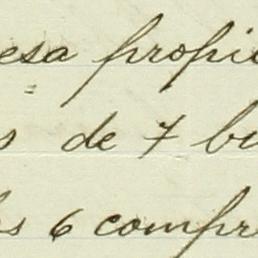 esa propie
s de 7 bu
s 6 compr